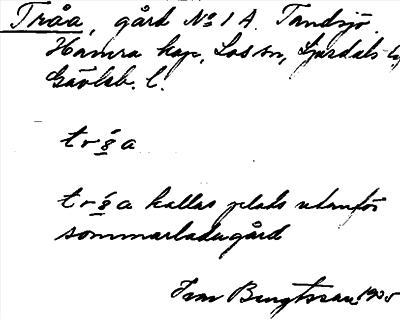 Tråa, gård № 1 A. Tandsjö.
Hamra kap, Los sn, Ljusdals
Gävleb. l.
tråa
tråa kallas plats utanför
sommarladugård
Bengtsson 1935